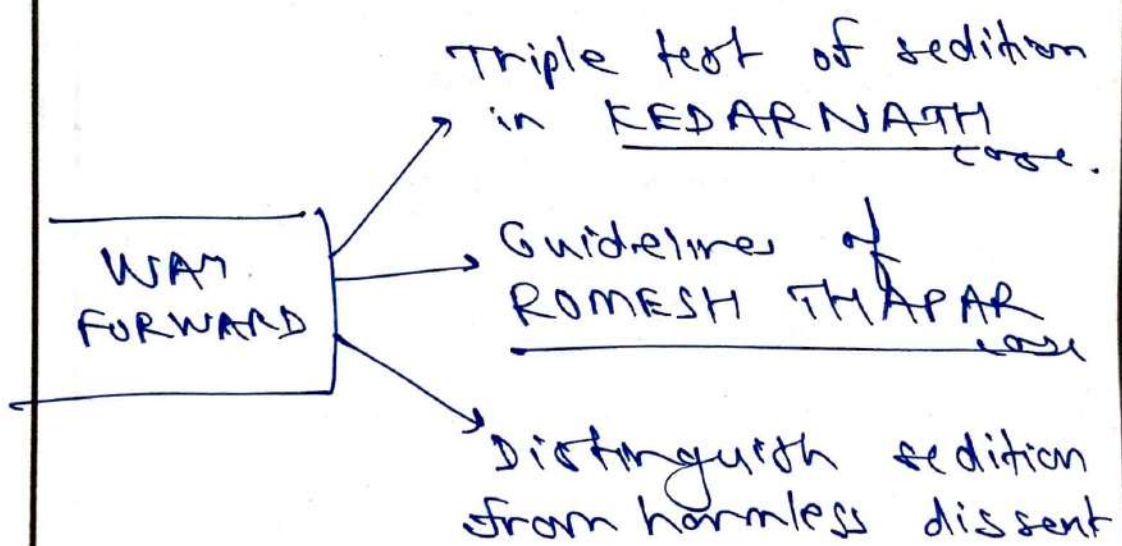 Triple test of sedition
in KEDARNATH
case.
WAY
FORWARD
Guidelines of
ROMESH THAPAR
case
Distinguish sedition
from harmless dissent